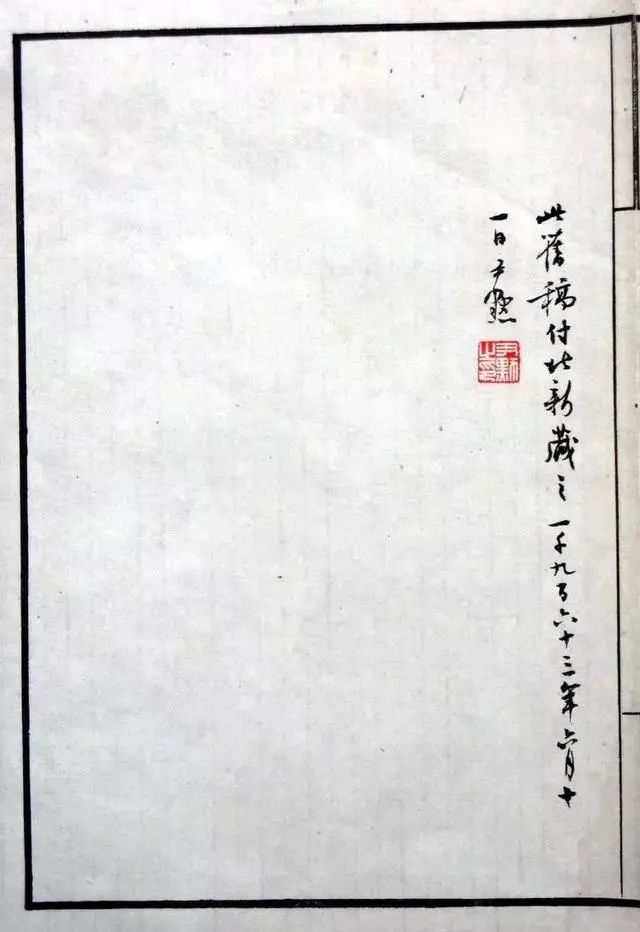 此舊稿付北新藏之一千九百六十三年六月十
一日尹默
尹默
之印